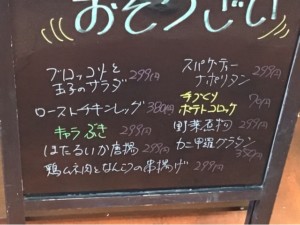 おそうざい
ブロッコリーと
玉子のサラダ 299円
ローストチキンレッグ 380円
キャラぶき 299円
ほたるいか唐揚 299円
鶏ムネ肉となんこつの串揚げ 299円
スパゲッティー
ナポリタン 299円
手づくり
ポテトコロッケ 70円
野菜煮物 299円
カニ甲羅グラタン
380円